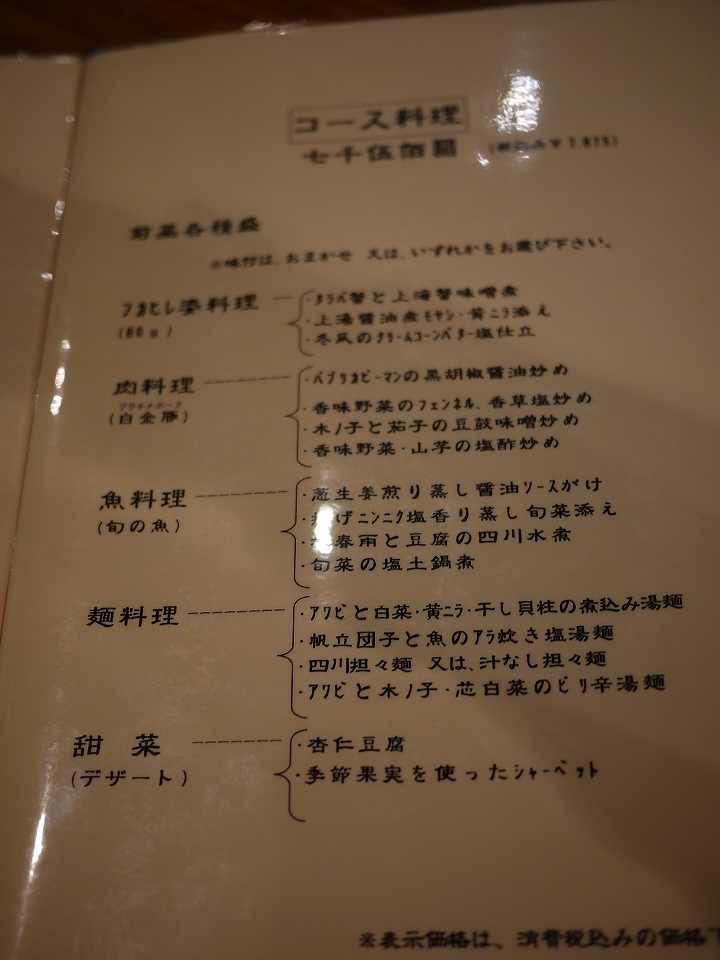 コース料理
七千伍佰圓 (税込み￥7,875)
前菜各種盛
※味付は、おまかせ 又は、いずれかをお選び下さい。
フカヒレ姿料理
(80g)
・タラバ蟹と上海蟹味噌煮
・上湯醤油煮モヤシ・黄ニラ添え
・冬瓜のクリームコーンバター塩仕立
肉料理
プラチナポーク
(白金豚)
・パプリカピーマンの黒胡椒醤油炒め
・香味野菜のフェンネル、香草塩炒め
・木ノ子と茄子の豆鼓味噌炒め
・香味野菜・山芋の塩酢炒め
魚料理
(旬の魚)
・葱生姜煎り蒸し醤油ソースがけ
・揚げニンニク塩香り蒸し旬菜添え
春雨と豆腐の四川水煮
・旬菜の塩土鍋煮
麺料理
・アワビと白菜・黄ニラ・干し貝柱の煮込み湯麺
・帆立団子と魚のアラ炊き塩湯麺
・四川担々麺 又は、汁なし担々麺
・アワビと木ノ子・芯白菜のピリ辛湯麺
甜菜
(デザート)
・杏仁豆腐
・季節果実を使ったシャーベット
※表示価格は、消費税込みの価格